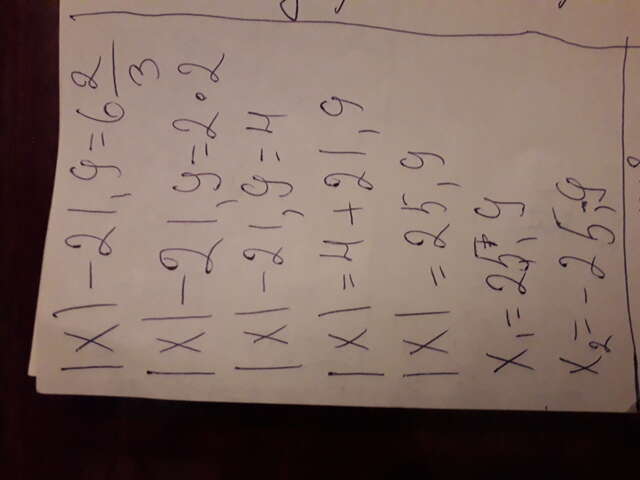 |X|-21,9=6 2/3
|X|-21,9=2·2
|X|-21,9=4
|X|=4+21,9
|X|=25,9
X₁=25,9
X₂=-25,9